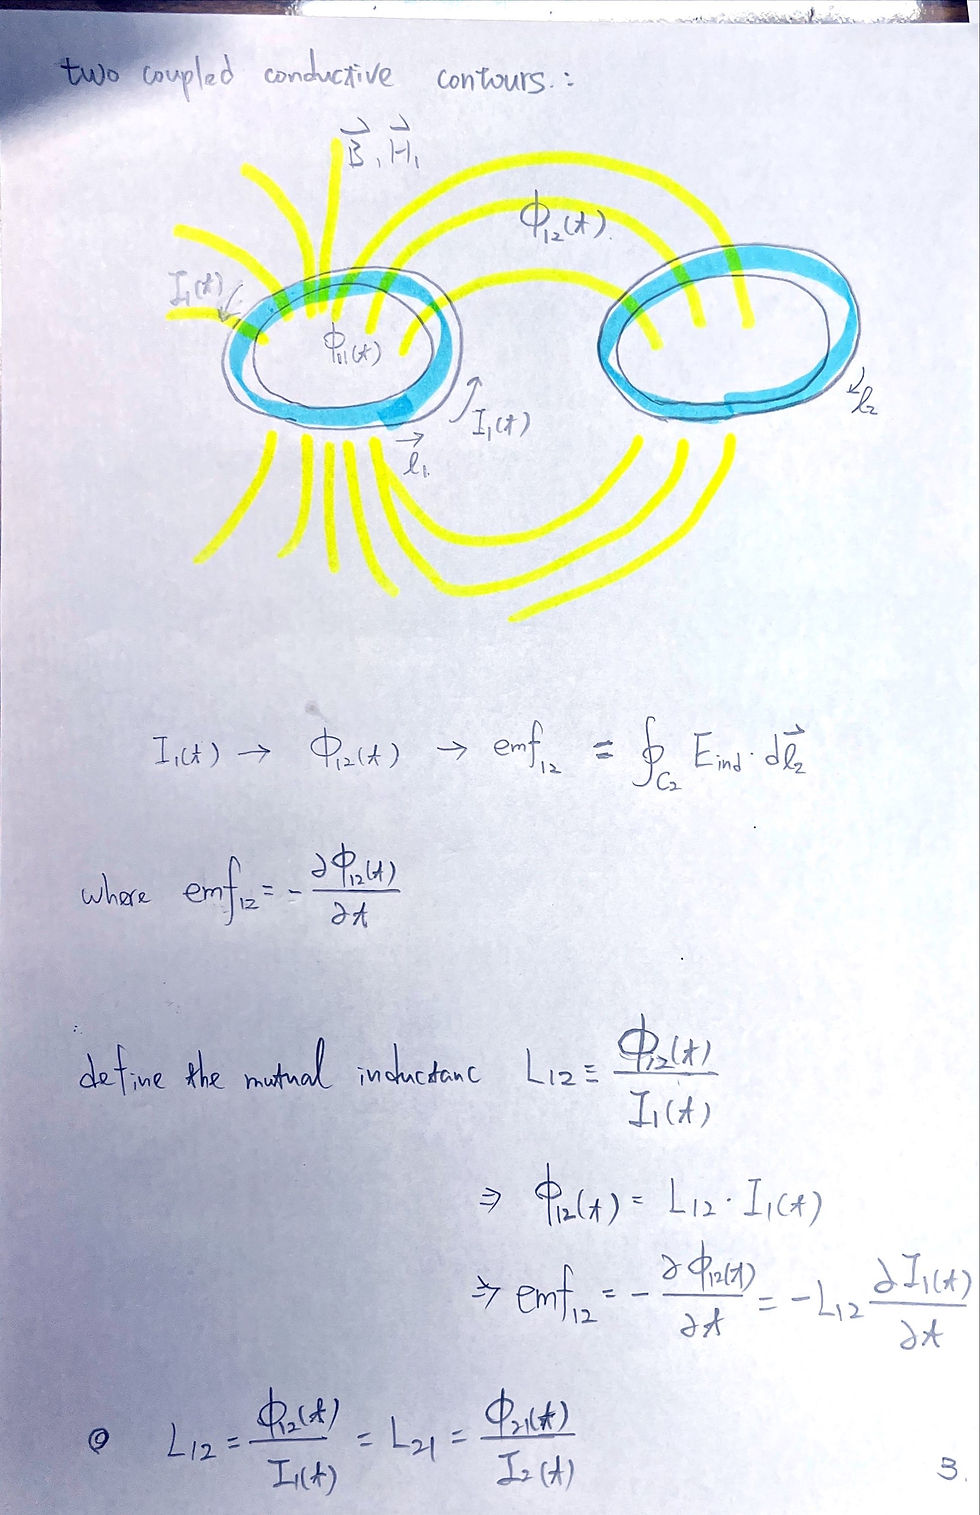 two coupled conductive contours.:
B⃗, H⃗₁
Φ₁₂(t).
I₁(t)
Φ₁₁(t)
I₁(t)
l⃗₁
l₂
I₁(t) → Φ₁₂(t) → emf₁₂ = ∮_C₂ E_ind · dl⃗₂
where emf₁₂ = - ∂Φ₁₂(t)/∂t
define the mutual inductanc L₁₂ ≡ Φ₁₂(t)/I₁(t)
⇒ Φ₁₂(t) = L₁₂ · I₁(t)
⇒ emf₁₂ = - ∂Φ₁₂(t)/∂t = -L₁₂ ∂I₁(t)/∂t
L₁₂ = Φ₁₂(t)/I₁(t) = L₂₁ = Φ₂₁(t)/I₂(t)
3.